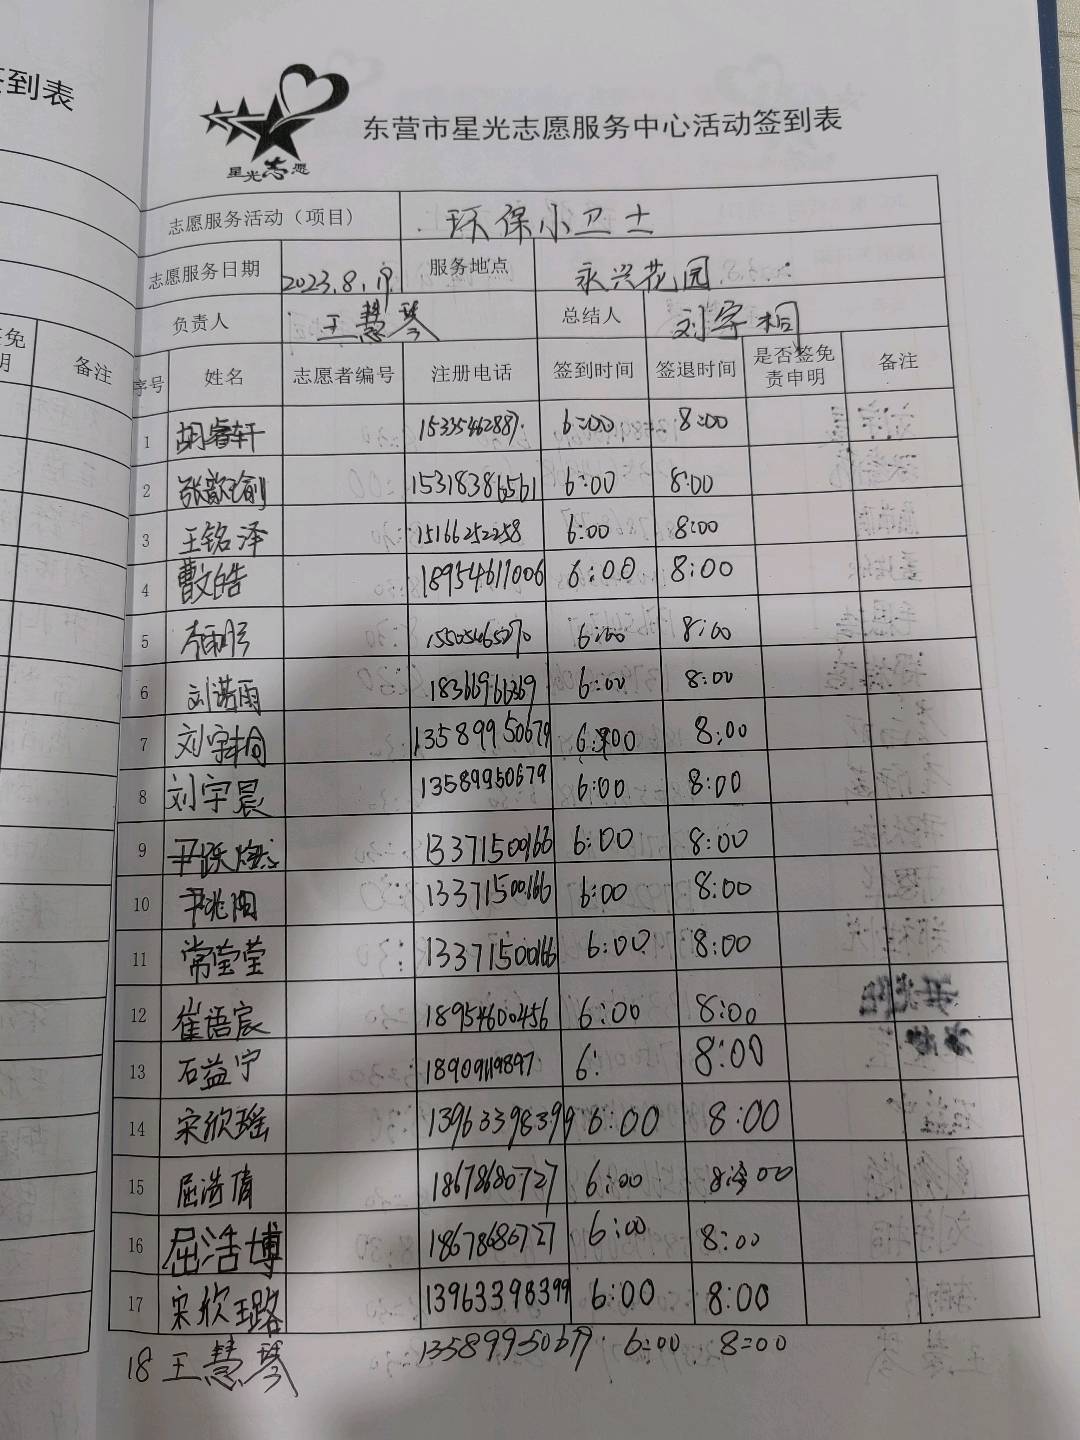 签到表
签免
明
备注
星光志愿
东营市星光志愿服务中心活动签到表
志愿服务活动（项目） 环保小卫士
志愿服务日期 2023.8.19 服务地点 永兴花园
负责人 王慧琴 总结人 刘宇桐
序号 姓名 志愿者编号 注册电话 签到时间 签退时间 是否签免责申明 备注
1 胡睿轩 15335462887 6:00 8:00
2 张歆瑜 15318386561 6:00 8:00
3 王铭泽 15166252258 6:00 8:00
4 曹文皓 18954611006 6:00 8:00
5 15505465270 6:00 8:00
6 刘诺雨 6:00 8:00
7 刘宇桐 13589950679 6:00 8:00
8 刘宇晨 13589950679 6:00 8:00
9 13371500166 6:00 8:00
10 尹兆阳 13371500166 6:00 8:00
11 常莹莹 13371500166 6:00 8:00
12 崔语宸 18954600456 6:00 8:00
13 石益宁 6: 8:00
14 宋欣瑶 13963398399 6:00 8:00
15 屈浩倩 18678680727 6:00 8:00
16 屈浩博 18678680727 6:00 8:00
17 宋欣璐 13963398399 6:00 8:00
18 王慧琴 13589950679 6:00 8:00